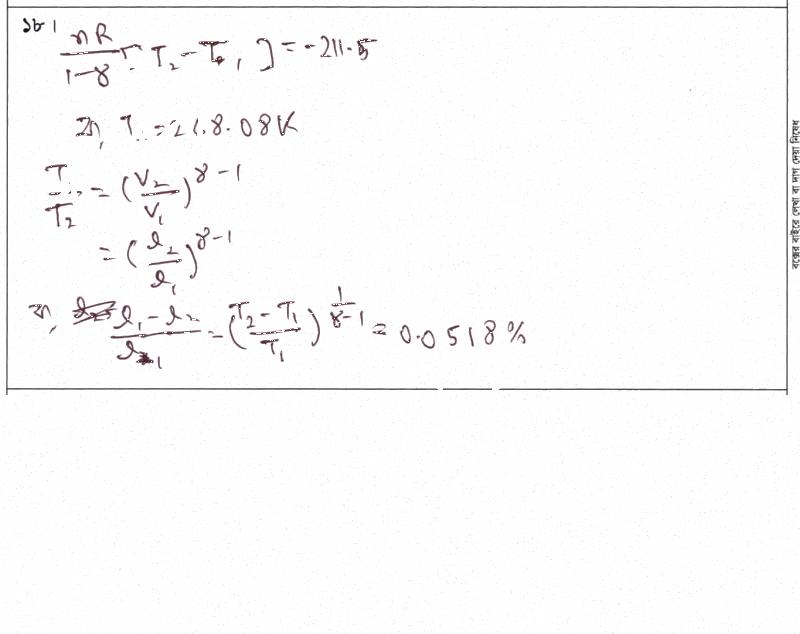 ১৮।
nR/(1-γ) [T₂ - T₁] = -211.5
বা, T = 218.08K
T/T₂ = (V₂/V₁)^(γ-1)
= (l₂/l₁)^(γ-1)
বা, (l₁ - l₂)/l₁ = ((T₂ - T₁)/T₁)^(1/(γ-1)) = 0.0518%
বক্সের বাইরে লেখা বা দাগ দেয়া নিষেধ